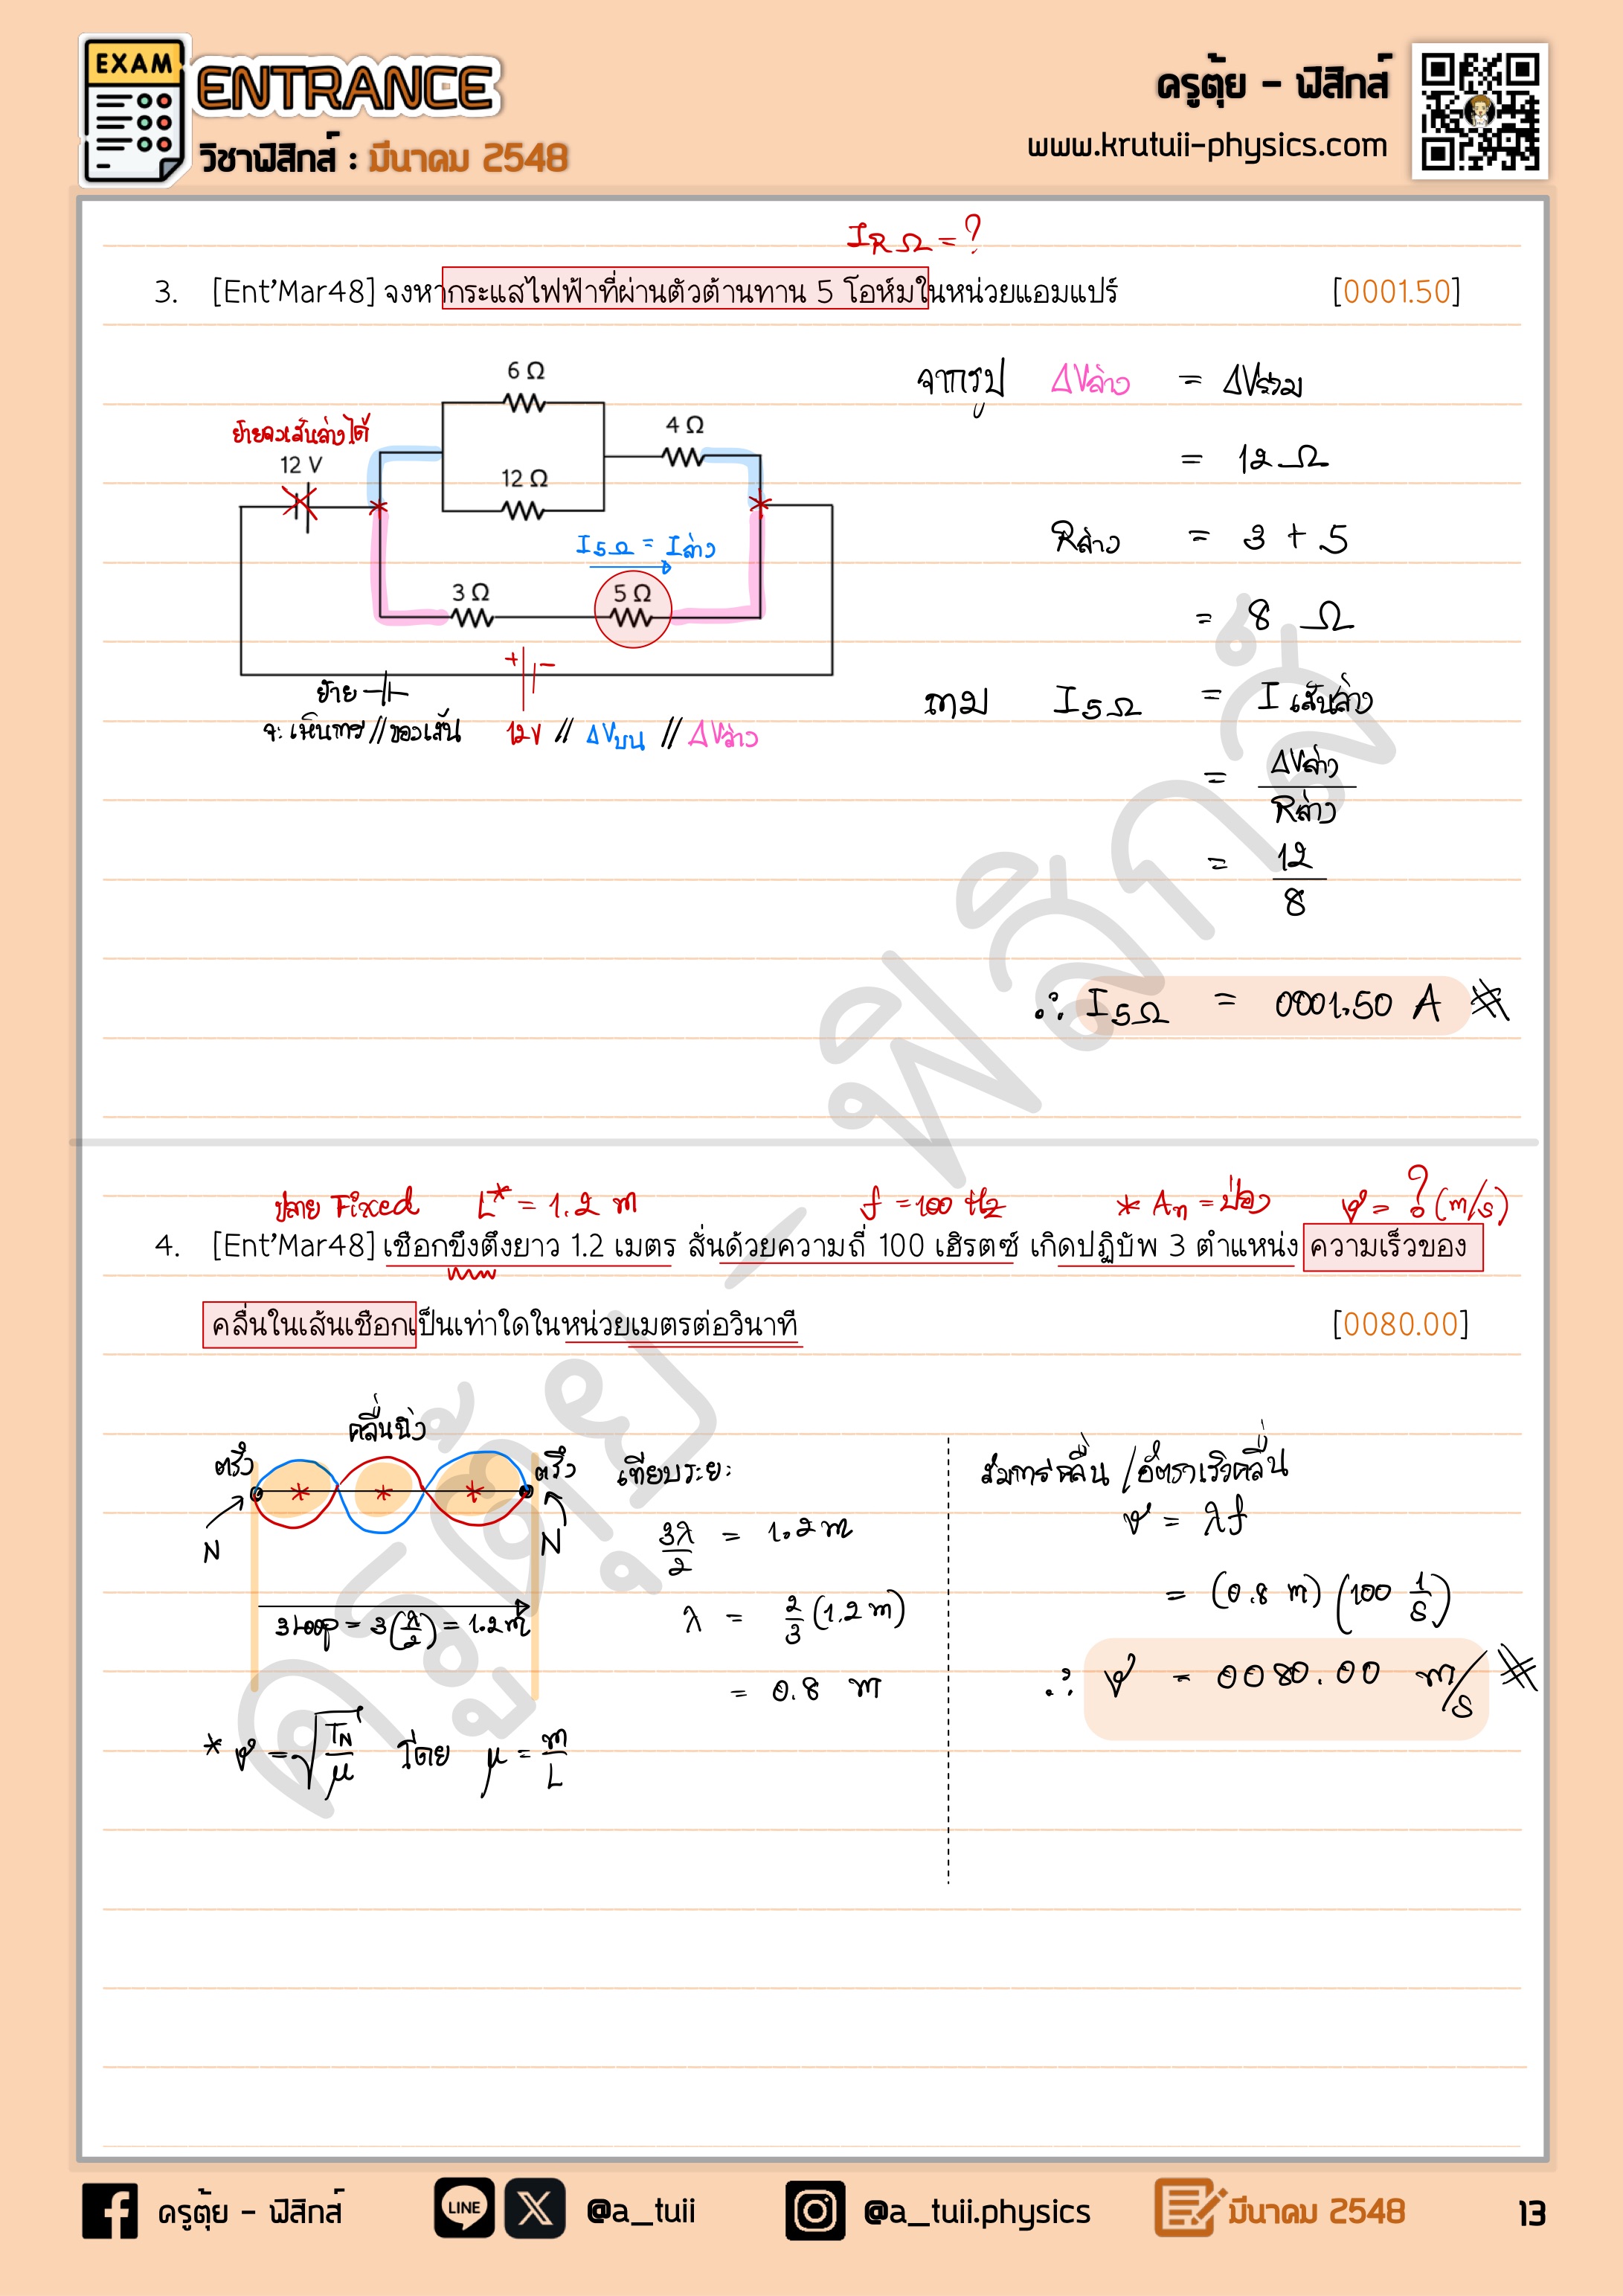 EXAM
ENTRANCE
วิชาฟิสิกส์ : มีนาคม 2548
ครูตุ้ย - ฟิสิกส์
www.krutuii-physics.com
I R Ω = ?
3. [Ent'Mar48] จงหากระแสไฟฟ้าที่ผ่านตัวต้านทาน 5 โอห์มในหน่วยแอมแปร์ [0001.50]
ย้ายลงเส้นล่างได้
12 V
6 Ω
12 Ω
4 Ω
I 5Ω = I ล่าง
3 Ω
5 Ω
+ -
ย้าย
จะเห็นการ // ของเส้น 12V // ΔVบน // ΔVล่าง
จากรูป ΔVล่าง = ΔVรวม
= 12 Ω
Rล่าง = 3 + 5
= 8 Ω
ถาม I 5Ω = I เส้นล่าง
= ΔVล่าง / Rล่าง
= 12 / 8
∴ I 5Ω = 0001.50 A #
ปลาย Fixed L* = 1.2 m f = 100 Hz * An = ป่อง v = ? (m/s)
4. [Ent'Mar48] เชือกขึงตึงยาว 1.2 เมตร สั่นด้วยความถี่ 100 เฮิรตซ์ เกิดปฏิบัพ 3 ตำแหน่ง ความเร็วของ
คลื่นในเส้นเชือกเป็นเท่าใดในหน่วยเมตรต่อวินาที [0080.00]
คลื่นนิ่ง
ตรึง * * * ตรึง
N N
3 Loop = 3(λ/2) = 1.2 m
* v = √(TN/μ) โดย μ = m/L
เทียบระยะ
3λ/2 = 1.2 m
λ = 2/3 (1.2 m)
= 0.8 m
สมการคลื่น / อัตราเร็วคลื่น
v = λf
= (0.8 m) (100 1/s)
∴ v = 0080.00 m/s #
ครูตุ้ย - ฟิสิกส์
ครูตุ้ย - ฟิสิกส์
LINE
@a_tuii
@a_tuii.physics
มีนาคม 2548
13